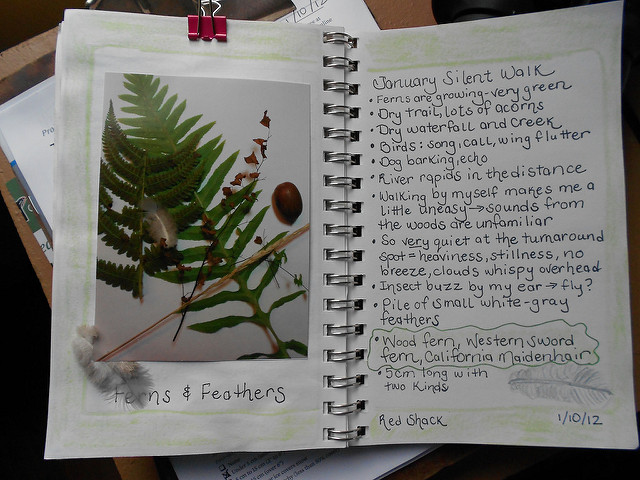 1/10/12
Ferns & Feathers
January Silent Walk
• Ferns are growing-very green
• Dry trail, lots of acorns
• Dry waterfall and creek
• Birds: song, call, wing flutter
• Dog barking, echo
• River rapids in the distance
• Walking by myself makes me a
little uneasy→sounds from
the woods are unfamiliar
• So very quiet at the turnaround
spot = heaviness, stillness, no
breeze, clouds whispy overhead
• Insect buzz by my ear → fly?
• Pile of small white-gray
feathers
• Wood fern, Western sword
fern, California Maidenhair
• 5cm long with
two kinds
Red Shack
1/10/12